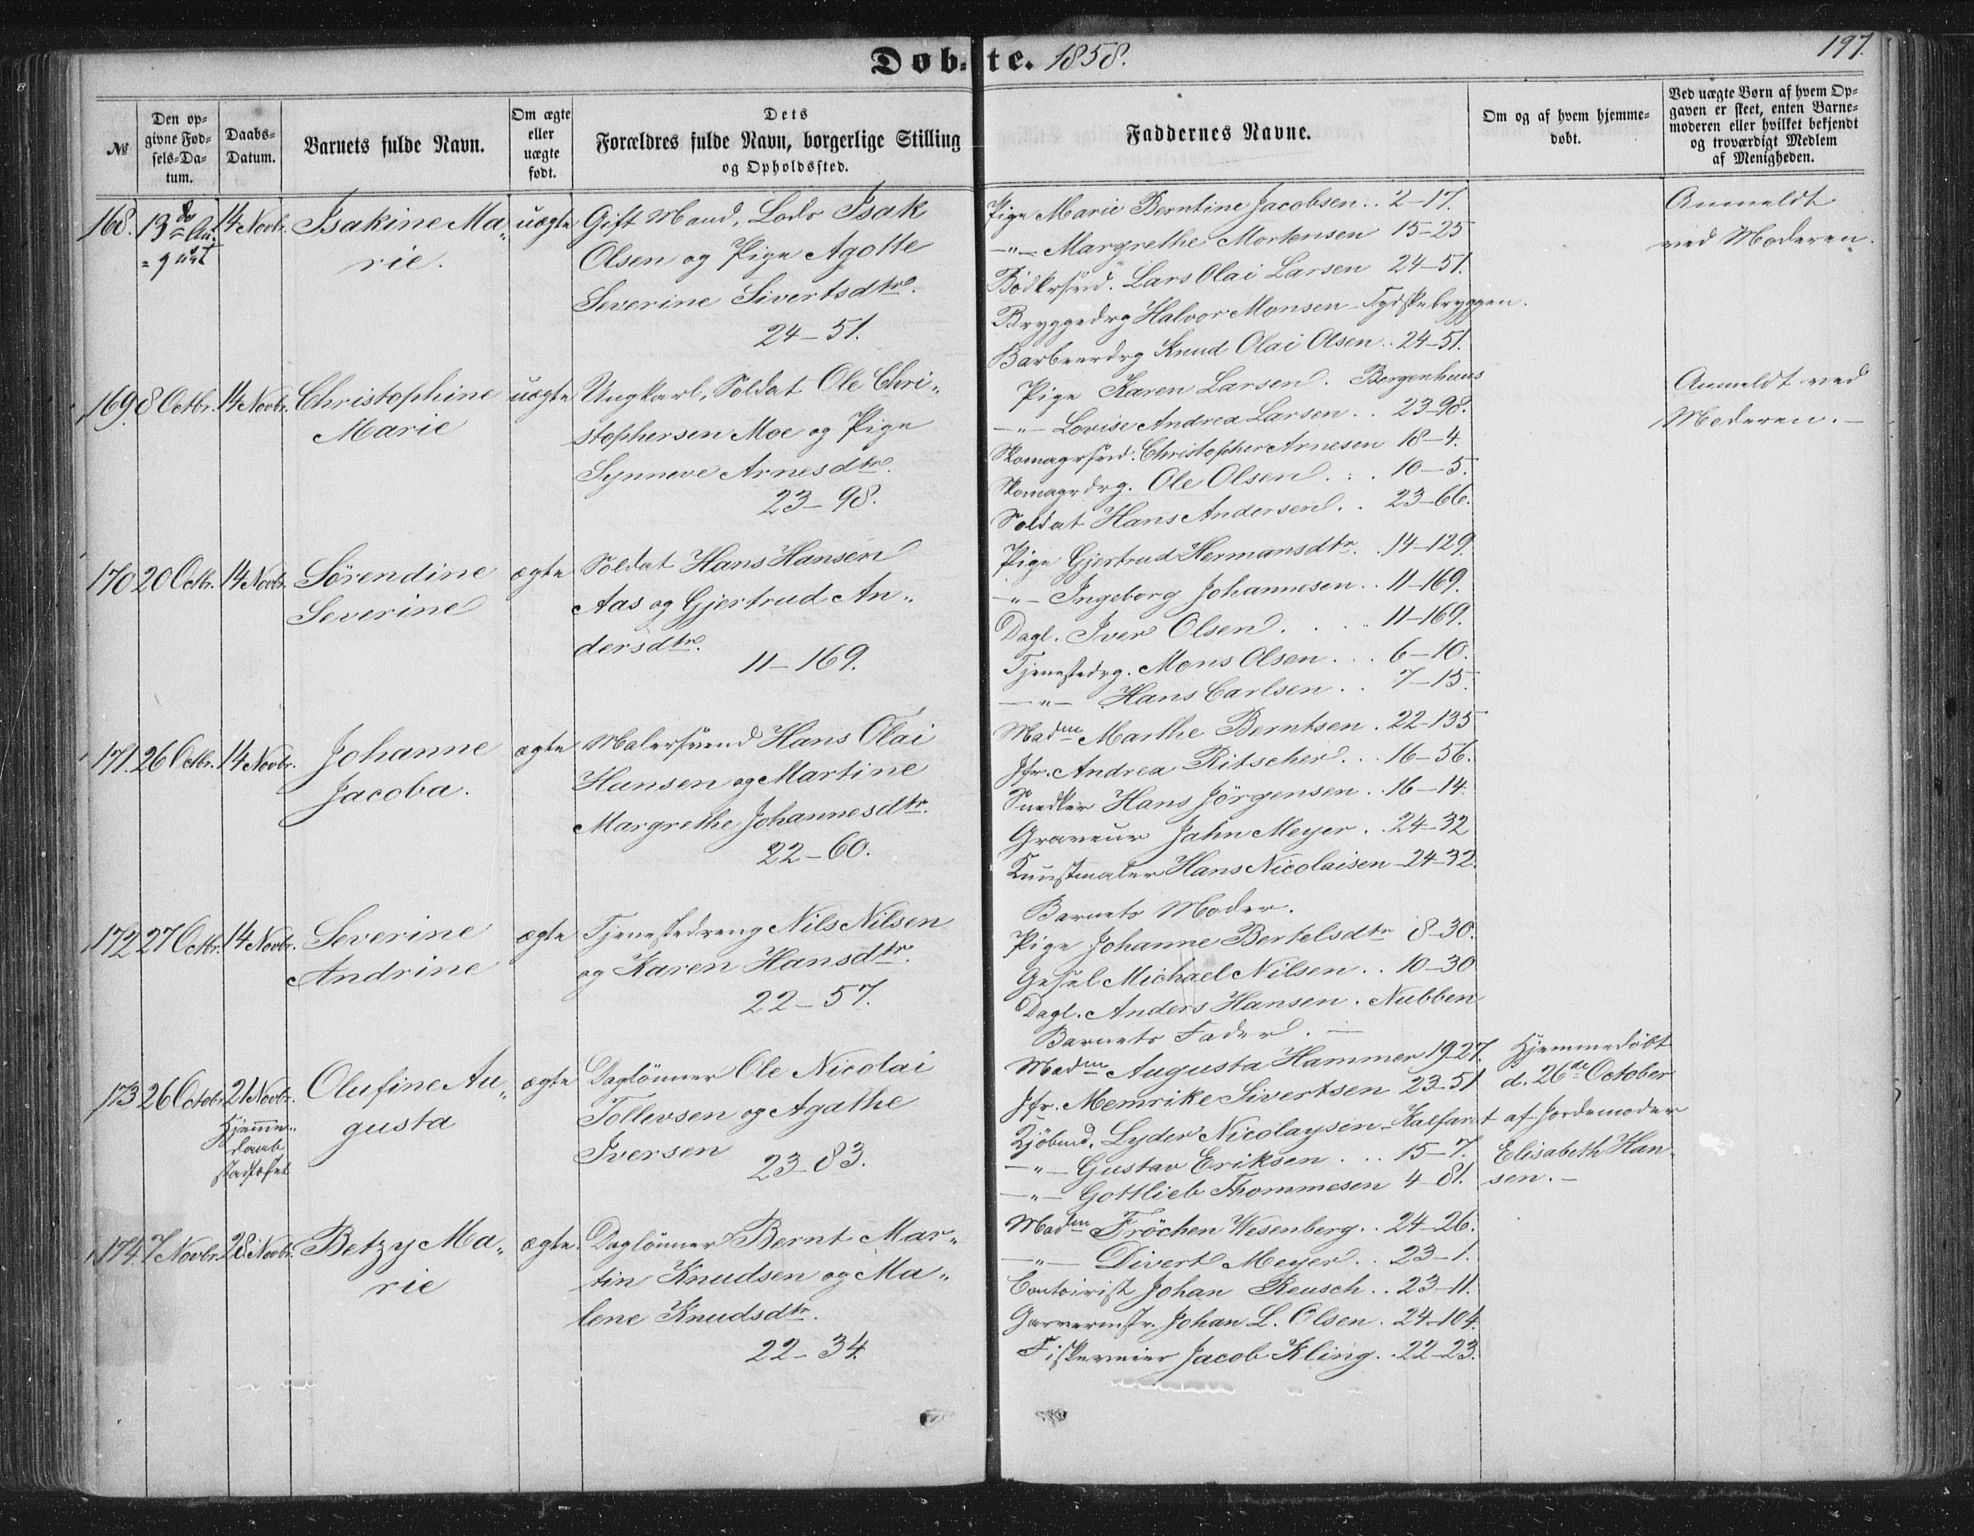 Døbte. 1858.
197.
№
Den opgivne Fødsels-Datum.
Daabs-Datum.
Barnets fulde Navn.
Om ægte eller uægte født.
Dets Forældres fulde Navn, borgerlige Stilling og Opholdssted.
Faddernes Navne.
Om og af hvem hjemmedøbt.
Ved uægte Børn af hvem Opgaven er skeet, enten Barnemoderen eller hvilket bekjendt og troværdigt Medlem af Menigheden.
168. 14 Novbr. Isakine Ma„
rie.
uægte
Gift Mand, Lods Isak
Olsen og Pige Agotte
Severine Sivertsdtr.
24–51.
Pige Marie Berntine Jacobsen.. 2–17.
–„– Margrethe Mortensen 15–25
Bødkersvd. Lars Olai Larsen 24–51.
Bryggedrg Halvor Monsen – Tydskebryggen.
Barbeerdrg Knud Olai Olsen.. 24–51.
Anmeldt
ved Moderen.
169. 8 Octbr. 14 Novbr. Christophine
Marie
uægte
Ungkarl, Soldat Ole Chri„
stophersen Moe og Pige
Synneve Arnesdtr.
23–98.
Pige Karen Larsen. Bergenhuus
–„– Lovise Andrea Larsen.. 23–98.
Skomagersvd. Christopher Arnesen 18–4.
Skomagrdrg. Ole Olsen... 10–5.
Soldat Hans Andersen.. 23–66.
Anmeldt ved
Moderen.–
170 20 Octbr. 14 Novbr. Sörendine
Severine
ægte
Soldat Hans Hansen
Aas og Gjertrud An„
dersdtr.
11–169.
Pige Gjertrud Hermansdtr. . 14–129
–„– Ingeborg Johannesen.. 11–169.
Dagl. Iver Olsen..... 11–169.
Tjenestedrg. Mons Olsen... 6–10.
–„– Hans Carlsen.. 7–15.
171. 26 Octbr. 14 Novbr. Johanne
Jacoba.
ægte
Malersvend Hans Olai
Hansen og Martine
Margrethe Johannesdtr.
22–60.
Madm Marthe Berntsen. 22–135
Jfr. Andrea Ritscher... 16–56.
Snedker Hans Jörgensen.. 16–14.
Graveur Jahn Meyer.. 24–32
Kunstmaler Hans Nicolaisen – 24–32.
172 27 Octbr. 14 Novbr. Severine
Andrine
ægte
Tjenestedreng Nils Nilsen
og Karen Hansdtr.
22–57.
Barnets Moder.
Pige Johanne Bertelsdtr 8–30.
Gesel Michael Nilsen.. 10–30
Dagl. Anders Hansen. Nubben
Barnets Fader.–
173 26 Octobr 21 Novbr. Olufine Au„
gusta
Hjemme„
daab
stadfæstet
ægte
Daglönner Ole Nicolai
Tollevsen og Agathe
Iversen 23–83.
Madm Augusta Hammer 19–27.
Jfr. Memrike Sivertsen 23–51
Kjöbmd. Lyder Nicolaysen – Kalfaret
–„– Gustav Eriksen... 15–7.
–„– Gottlieb Thommesen 4–81.
Hjemmedöbt
d. 26de October
af Jordemoder
Elisabeth Han„
sen.–
174 7 Novbr. 28 Novbr. Betzy Ma„
rie
ægte.
Daglönner Bernt Mar„
tin Knudsen og Ma„
lene Knudsdtr.
22–34.
Madm Fröchen Wesenberg.. 24–26.
–„– Divert Meyer.. 23–1.
Contoirist Johan Reusch.. 23–11.
Garvermstr. Johan L. Olsen. 24–104.
Fiskeveier Jacob Kling.. 22–23.